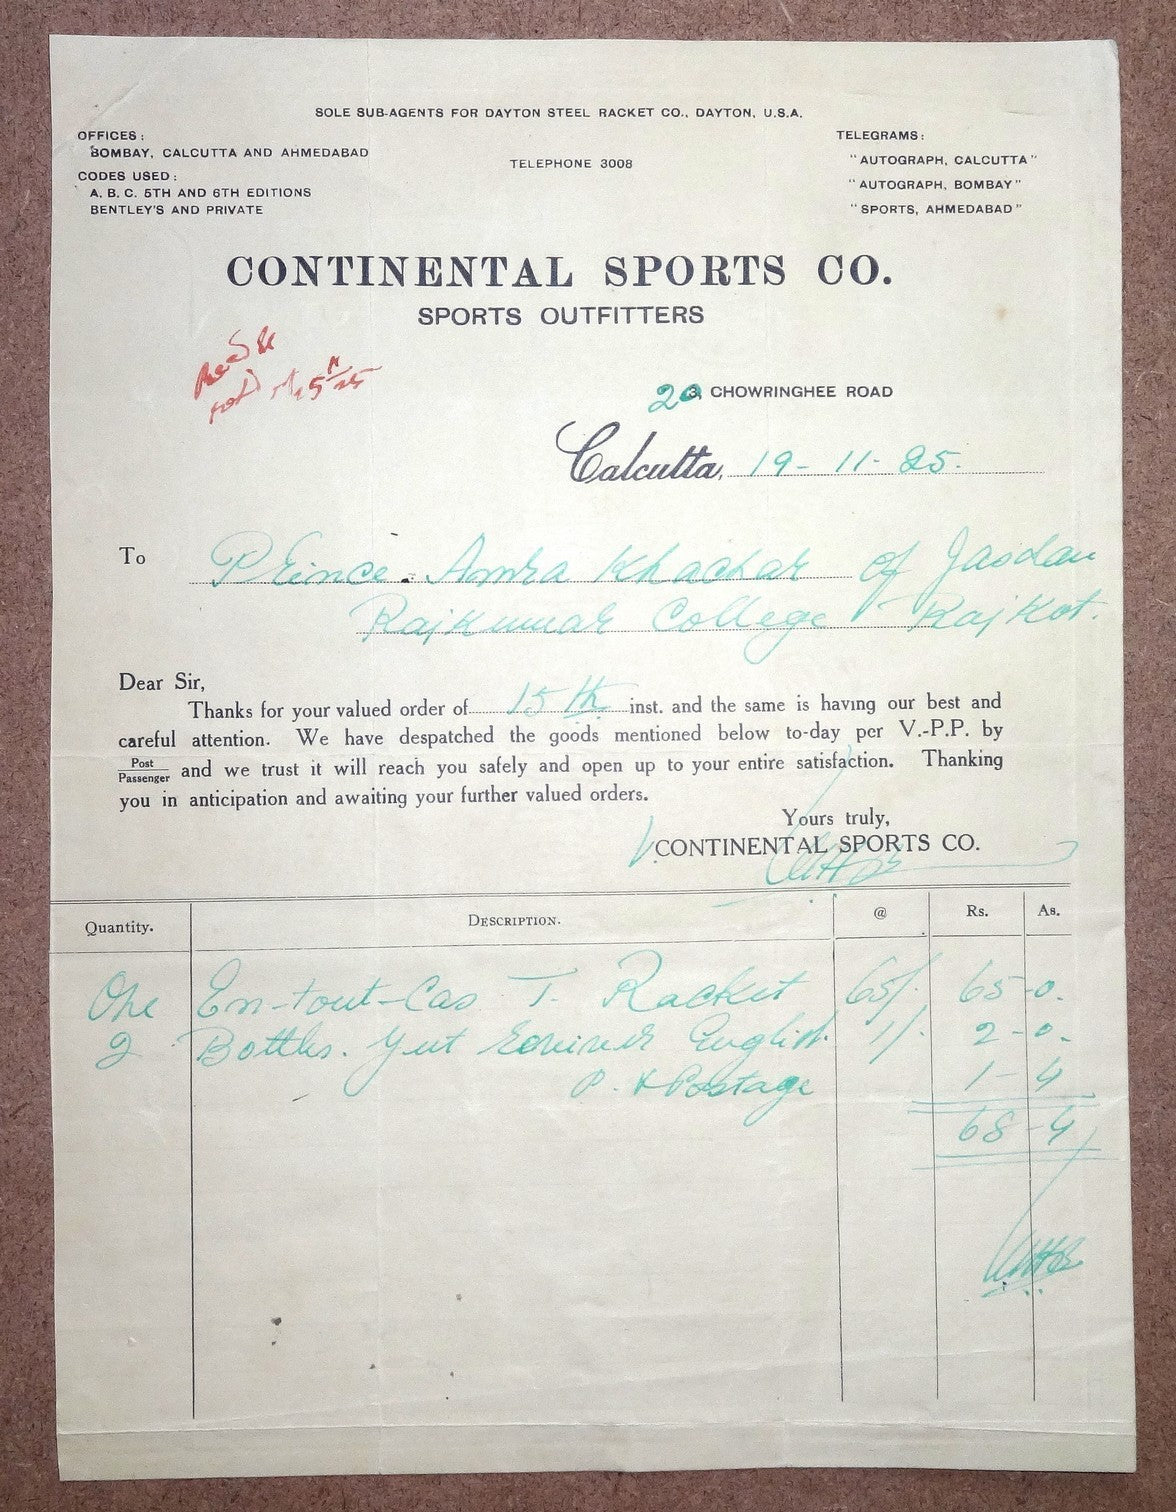 SOLE SUB-AGENTS FOR DAYTON STEEL RACKET CO., DAYTON, U.S.A.
OFFICES:
BOMBAY, CALCUTTA AND AHMEDABAD
CODES USED:
A. B. C. 5TH AND 6TH EDITIONS
BENTLEY'S AND PRIVATE
TELEPHONE 3008
TELEGRAMS:
"AUTOGRAPH, CALCUTTA"
"AUTOGRAPH, BOMBAY"
"SPORTS, AHMEDABAD"
CONTINENTAL SPORTS CO.
SPORTS OUTFITTERS
20 CHOWRINGHEE ROAD
Calcutta, 19-11-25.
To Prince. Amra Khachar of Jasdan
Rajkumar College Rajkot.
Dear Sir,
Thanks for your valued order of 15th inst. and the same is having our best and
careful attention. We have despatched the goods mentioned below to-day per V.-P.P. by
Post
Passenger and we trust it will reach you safely and open up to your entire satisfaction. Thanking
you in anticipation and awaiting your further valued orders.
Yours truly,
CONTINENTAL SPORTS CO.
Quantity. DESCRIPTION. @ Rs. As.
One En-tout-Cas T. Racket 65/. 65-0.
2 Bottles. Gut English. 1/. 2-0.
P. & Postage 1-4
68-4